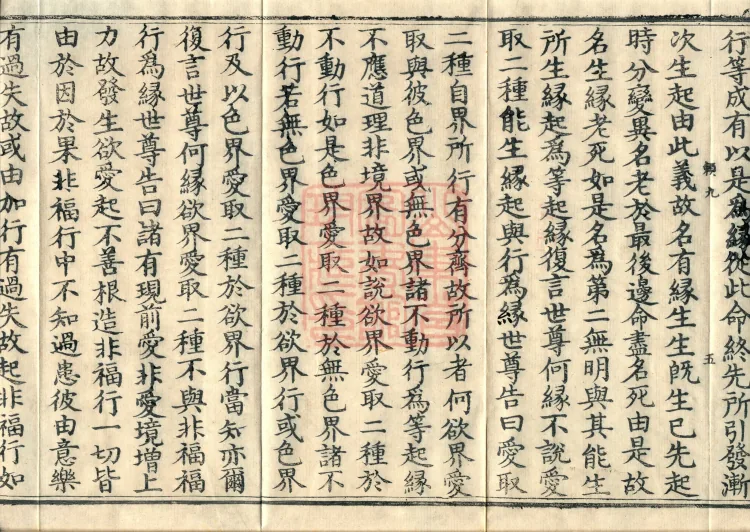 行等成有以是為緣從此命終先所引發漸
賴九
五
次生起由此義故名有緣生生既生已先起
時分變異名老於最後邊命盡名死由是故
名生緣老死如是名為第二無明與其能生
所生緣起為等起緣復言世尊何緣不說愛
取二種能生緣起與行為緣世尊告曰愛取
二種自界所行有分齊故所以者何欲界愛
取與彼色界或無色界諸不動行為等起緣
不應道理非境界故如說欲界愛取二種於
不動行如是色界愛取二種於無色界諸不
動行若無色界愛取二種於欲界行或色界
行及以色界愛取二種於欲界行當知亦爾
復言世尊何緣欲界愛取二種不與非福福
行為緣世尊告曰諸有現前愛非愛境增上
力故發生欲愛起不善根造非福行一切皆
由於因於果非福行中不知過患彼由意樂
有過失故或由加行有過失故起非福行如